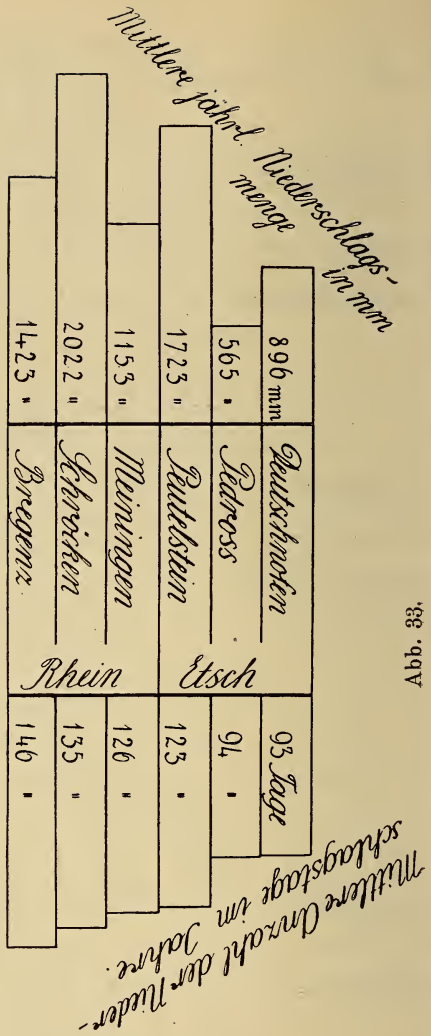 Mittlere jährl. Niederschlags-
menge in mm
896 mm Deutschnofen 93 Tage
565 " Pedross 94 "
1723 " Peutelstein 123 "
Etsch
1153 " Meiningen 126 "
2022 " Schröcken 135 "
1423 " Bregenz 146 "
Rhein
Mittlere Anzahl der Nieder-
schlagstage im Jahre.
Abb. 33.